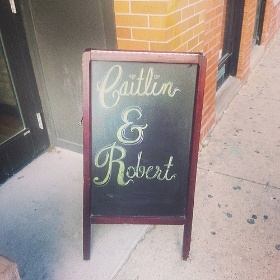 Caitlin
&
Robert